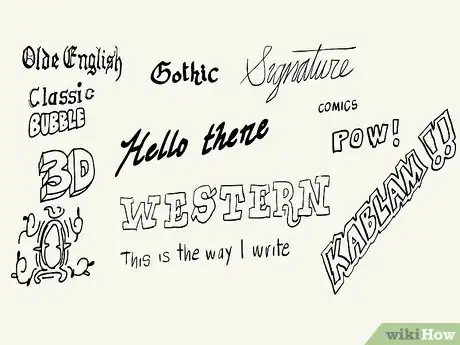 Olde English
Gothic
Signature
Classic
BUBBLE
COMICS
POW!
Hello there
3D
WESTERN
KABLAM!!
This is the way I write
wikiHow